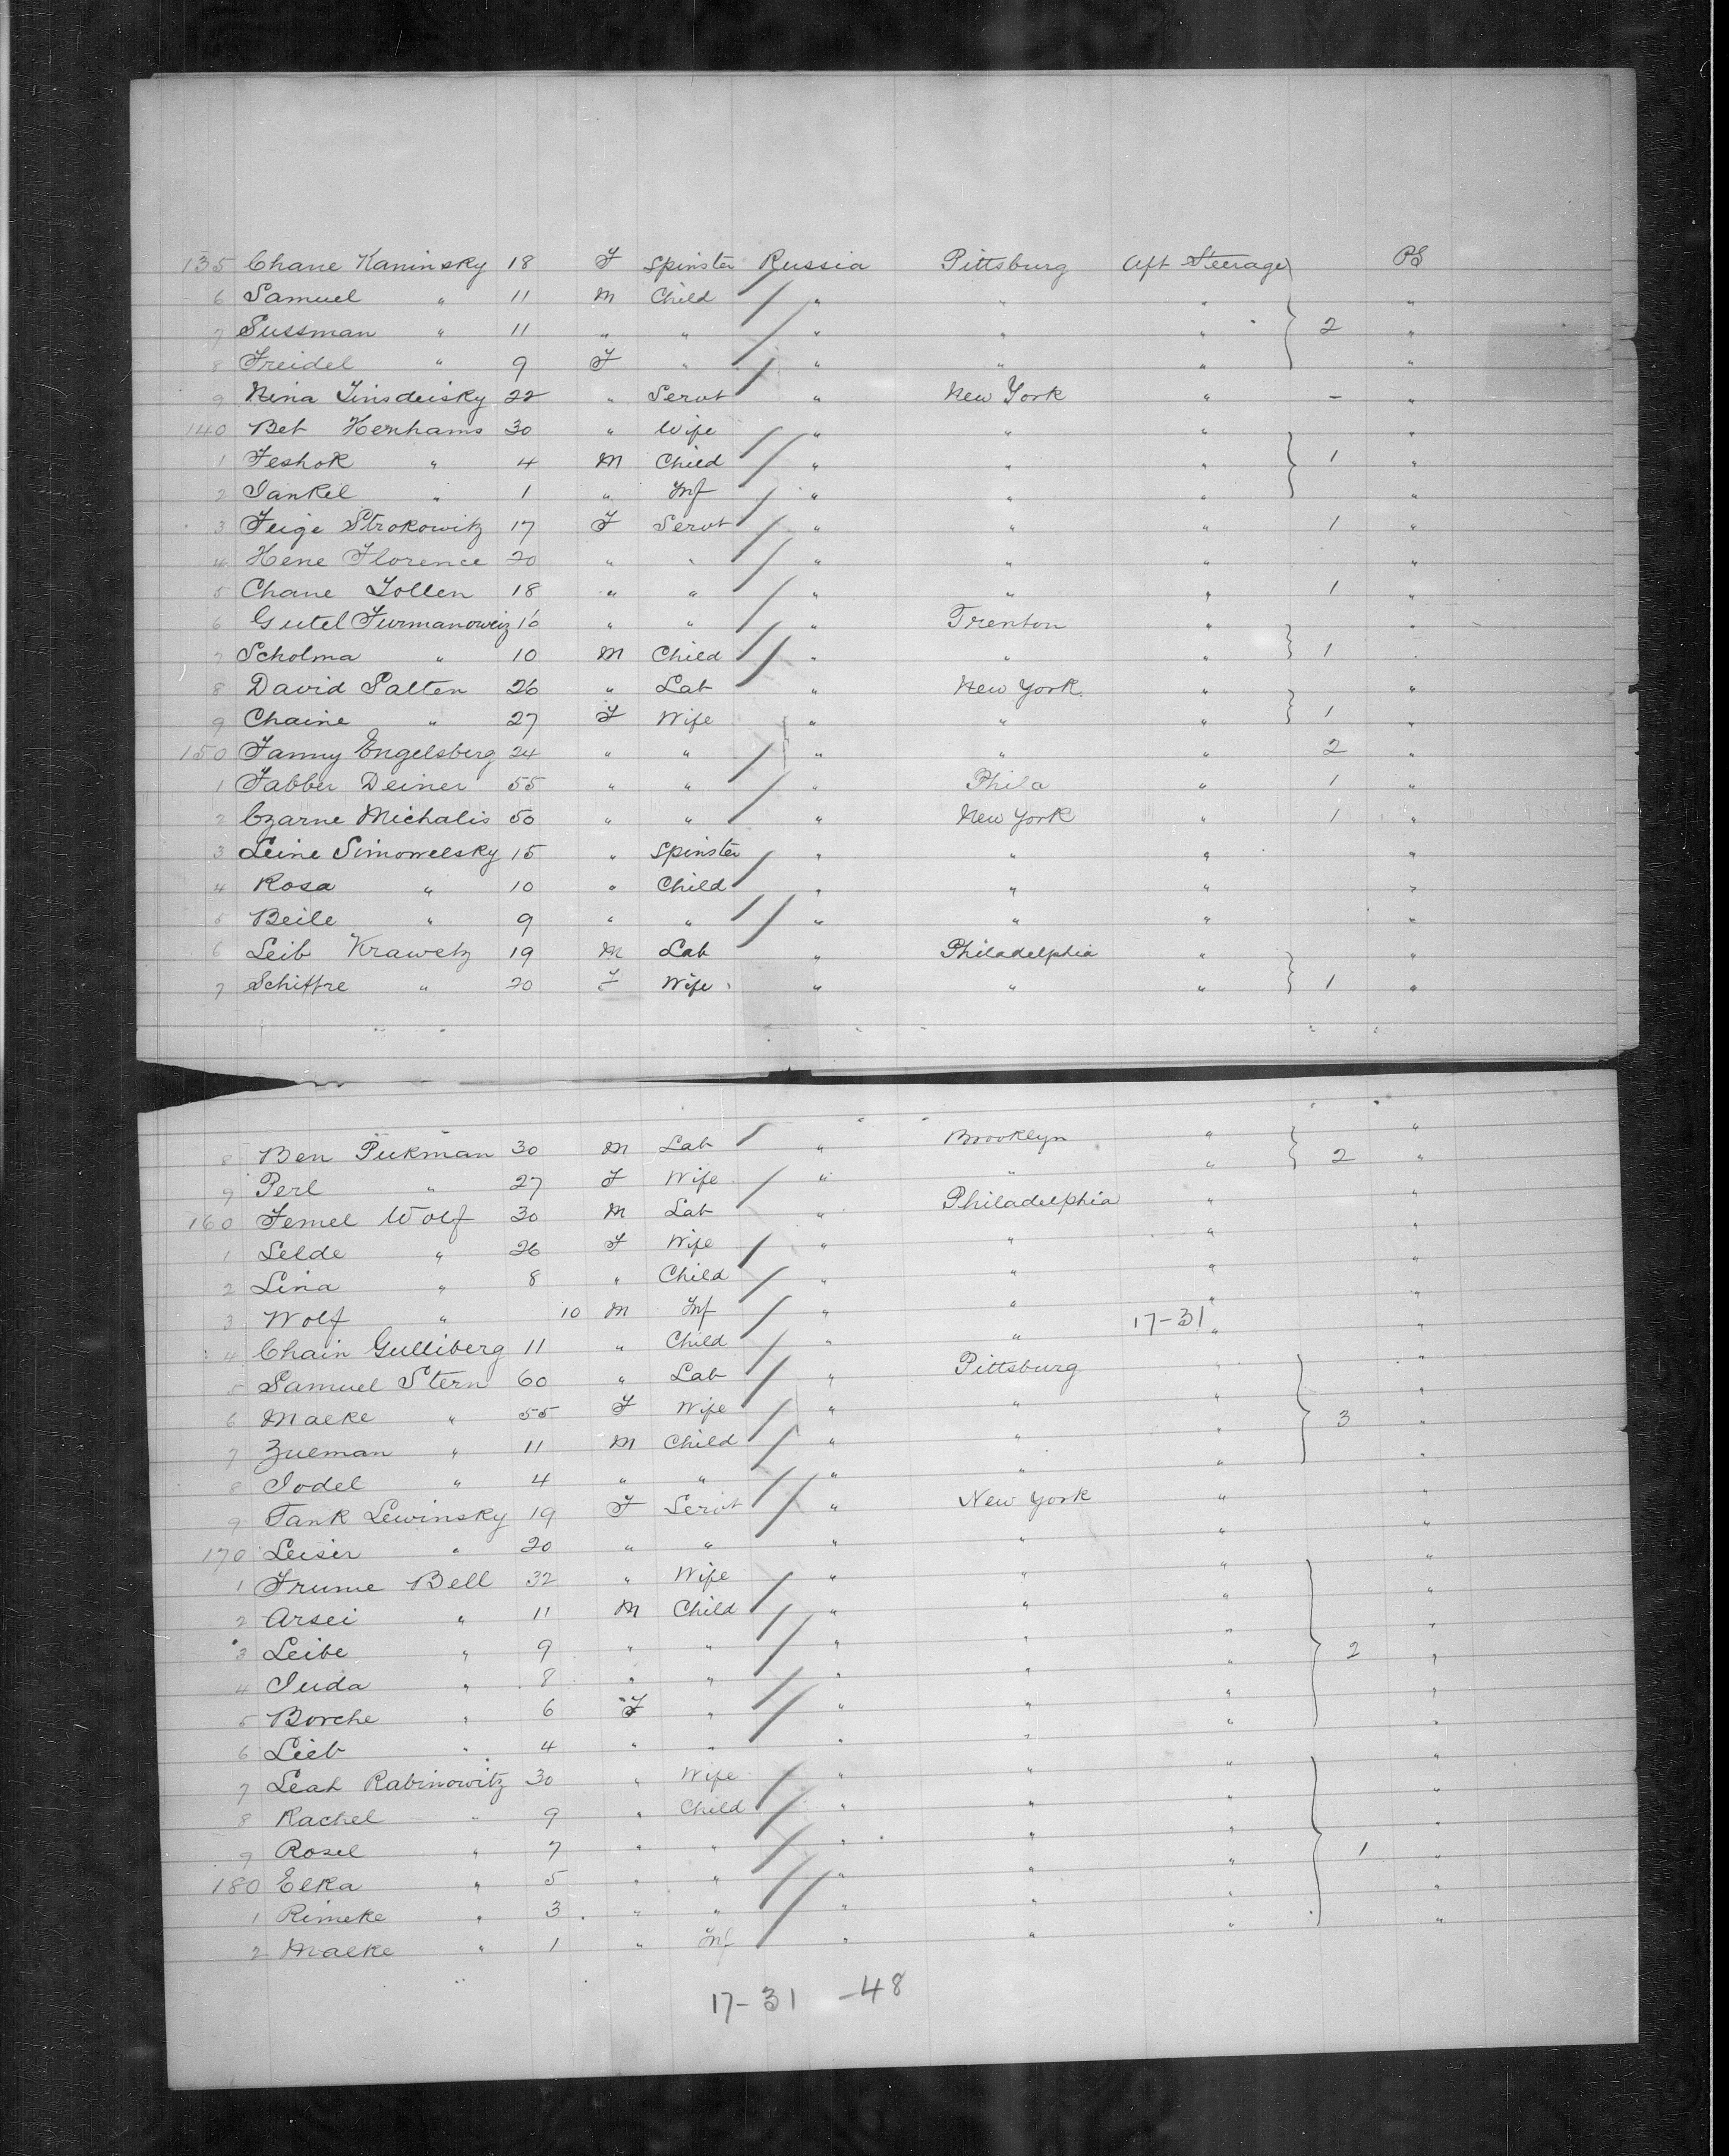 135 Chane Kaninsky 18 F Spinster Russia Pittsburg Aft Steerage PS
6 Samuel " 11 M Child " " " "
7 Sussman " 11 " " " " " 2 "
8 Freidel " 9 F " " " " "
9 Nina Tinsdeisky 22 " Servt " New York " - "
140 Bet Henhams 30 " Wife " " " "
1 Feshok " 4 M Child " " " 1 "
2 Jankel " 1 " Inf " " " "
3 Feige Strokowitz 17 F Servt " " " 1 "
4 Hene Florence 20 " " " " " "
5 Chane Tollen 18 " " " " " 1 "
6 Gutel Furmanoweiz 16 " " " Trenton " "
7 Scholma " 10 M Child " " " 1 "
8 David Salten 26 " Lab " New York. " "
9 Chaine " 27 F Wife " " " 1 "
150 Fanny Engelsberg 24 " " " " " 2 "
1 Fabber Deiner 55 " " " Phila " 1 "
2 Czarne Michalis 50 " " " New York " 1 "
3 Leine Simowelsky 15 " Spinster " " " "
4 Rosa " 10 " Child " " " "
5 Beile " 9 " " " " " "
6 Leib Krawetz 19 M Lab " Philadelphia " "
7 Schiffre " 20 F Wife " " " 1 "
8 Ben Pukman 30 M Lab " Brooklyn " "
9 Perl " 27 F Wife " " " 2 "
160 Femel Wolf 30 M Lab " Philadelphia " "
1 Lelde " 26 F Wife " " " "
2 Lina " 8 " Child " " " "
3 Wolf " 10 M Inf " " " "
4 Chain Gulliberg 11 " Child " " 17-31 " "
5 Samuel Stern 60 " Lab " Pittsburg " "
6 Maeke " 55 F Wife " " " "
7 Zueman " 11 M Child " " " 3 "
8 Jodel " 4 " " " " " "
9 Tank Lewinsky 19 F Servt " New York " "
170 Leiser " 20 " " " " " "
1 Frume Bell 32 " Wife " " " "
2 Arsei " 11 M Child " " " "
3 Leibe " 9 " " " " " "
4 Juda " 8 " " " " " 2 "
5 Borche " 6 F " " " " "
6 Lieb " 4 " " " " " "
7 Leah Rabinowitz 30 " Wife " " " "
8 Rachel " 9 " Child " " " "
9 Rosel " 7 " " " " " "
180 Elka " 5 " " " " " 1 "
1 Rimeke " 3 " " " " " "
2 Maeke " 1 " Inf " " " "
17-31 -48